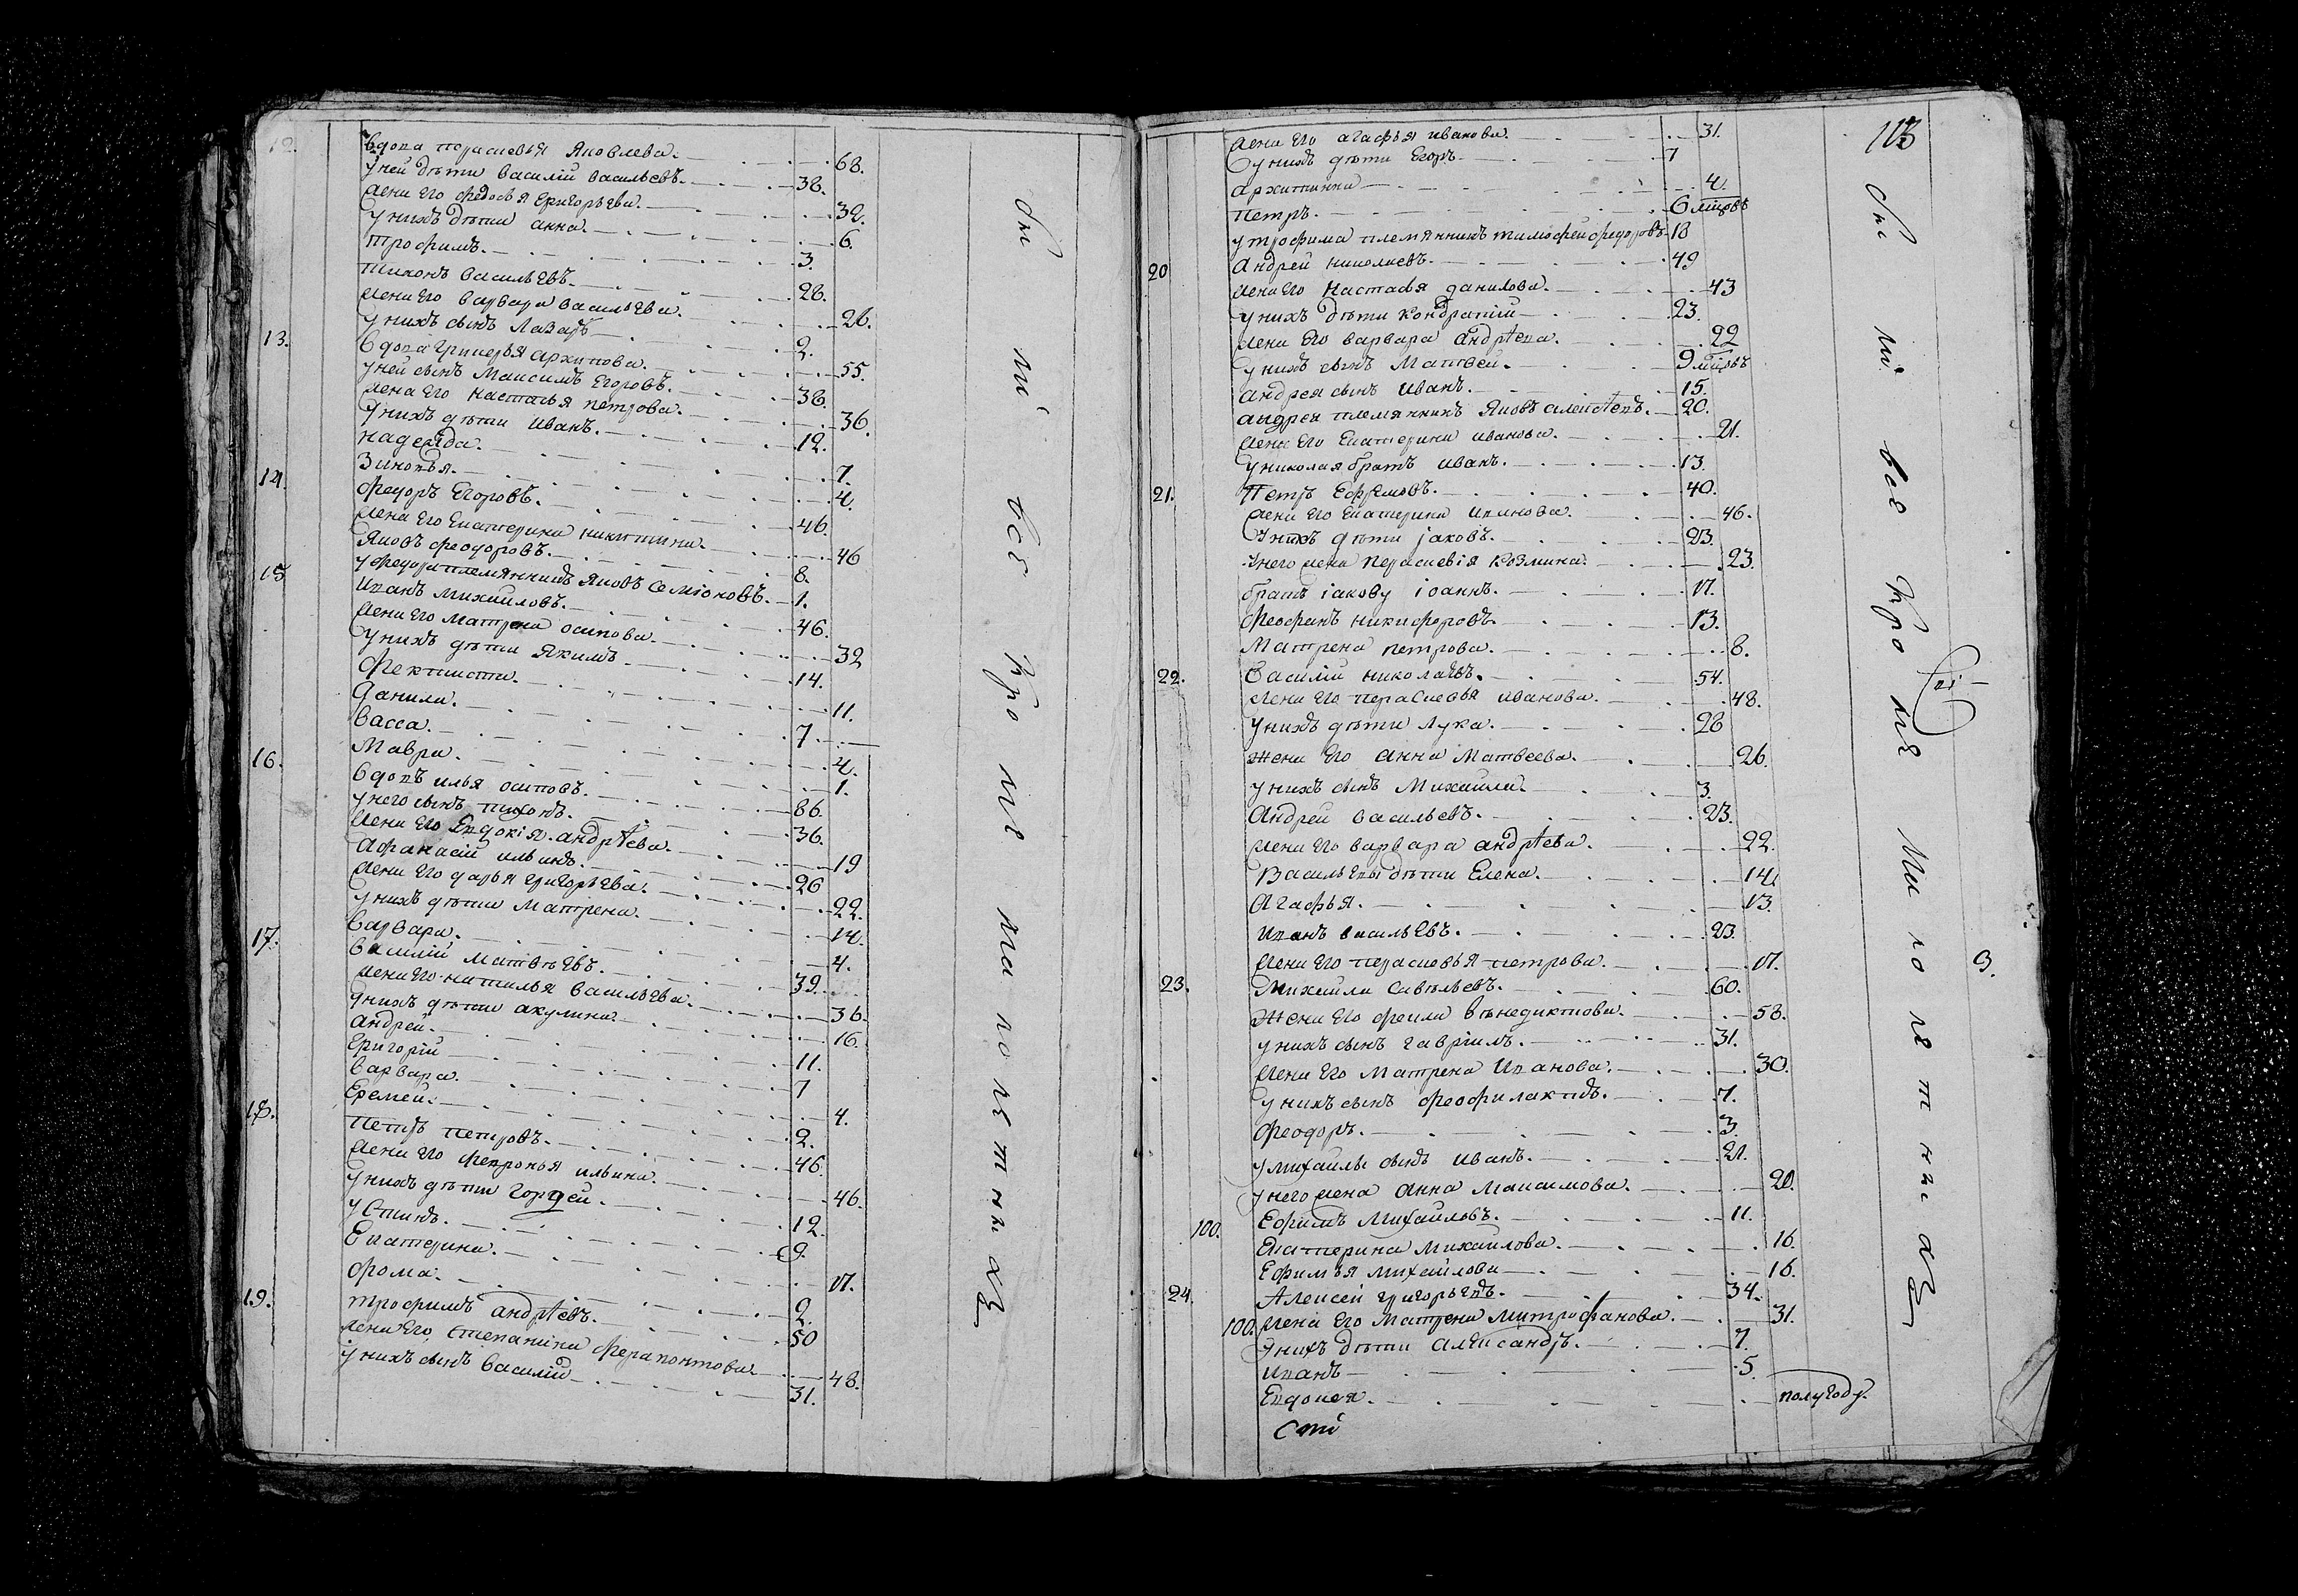 12. вдова парасковья Яковлева. 68.
у ней дѣти василій васильевъ. 38.
жена его федосья Григорьева. 32.
у нихъ дѣти анна. 6.
трофимъ. 3.
тихонъ васильевъ. 28.
жена его варвара васильева. 26.
у нихъ сынъ Лазарь 2.
13. вдова архипова. 55.
у ней сынъ Максимъ Егоровъ. 38.
жена его настасья петрова. 36.
у нихъ дѣти иванъ. 12.
надежда. 7.
Зиновья. 4.
14. федоръ Егоровъ. 46.
жена его Екатерина никитина. 46
Яковъ феодоровъ. 8.
у федора племянникъ Яковъ Семіоновъ. 1.
15 иванъ михайловъ. 46.
жена его матрена осипова. 32
у нихъ дѣти якимъ 14.
фектиста. 11.
данила. 7.
васса. 4.
Мавра. 1.
16. вдовъ илья осиповъ. 86.
у него сынъ тихонъ. 36.
жена его Евдокія андрѣева. 19
Афанасій ильинъ. 26
жена его дарья григорьева. 22.
у нихъ дѣти матрена. 14.
варвара. 4.
17. василій матвѣевъ. 39.
жена его наталья васильева. 36.
у нихъ дѣти акулина. 16.
андрей. 11.
григорій 7
варвара. 4.
Еремей. 2.
18. петръ петровъ. 46.
жена его февронья ильина. 46.
у нихъ дѣти гордей. 12.
устинъ. 9.
Екатерина. 17.
фома. 2.
19. трофимъ андрѣевъ. 50
жена его степанида ферапонтова 48.
у нихъ сынъ василій 31.
всѣ
113
жена его агафья иванова. 31.
у нихъ дѣти Егоръ 7
4.
петръ. 6 мцовъ
у трофима племянникъ тимофей федоровъ 18
20 андрей николаевъ. 49
жена его настасья данилова. 43
у нихъ дѣти кондратій 23.
жена его варвара андрѣева. 22
у нихъ сынъ Матвей. 9 мцовъ
андрея сынъ иванъ. 15.
андрея племянникъ Яковъ алексѣевъ. 20.
жена его Екатерина иванова. 21.
у николая братъ иванъ. 13.
21. Петръ Ефремовъ. 40.
жена его Екатерина иванова. 46.
у нихъ дѣти јаковъ. 23.
у него жена парасковія козмина. 23.
братъ іакову іоаннъ. 17.
феофанъ никифоровъ. 13.
Матрена петрова. 8.
22. василій николаевъ. 54.
жена его парасковья иванова. 48.
у нихъ дѣти лука. 28
жена его анна матвеева. 26.
у нихъ сынъ Михаила. 3.
андрей васильевъ. 23.
жена его варвара андрѣева. 22.
Васильевы дѣти Елена. 14.
агафья. 13.
иванъ васильевъ. 23.
жена его парасковья петрова. 17.
23. михаила савѣльевъ. 60.
жена его фекла венедиктова. 58.
у нихъ сынъ гавріилъ. 31.
жена его матрена иванова. 30.
у нихъ сынъ феофилактъ. 7.
феодоръ. 3
у михайлы сынъ иванъ. 21.
у него жена анна максимова. 20.
100. Ефимъ михайловъ. 11.
Екатерина михайлова. 16.
Ефимья михайлова 16.
24 Алексей григорьевъ. 34.
100. жена его матрена митрофанова. 31.
у нихъ дѣти александръ. 7.
иванъ 5.
Евдокея. полугоду.
всѣ
3.